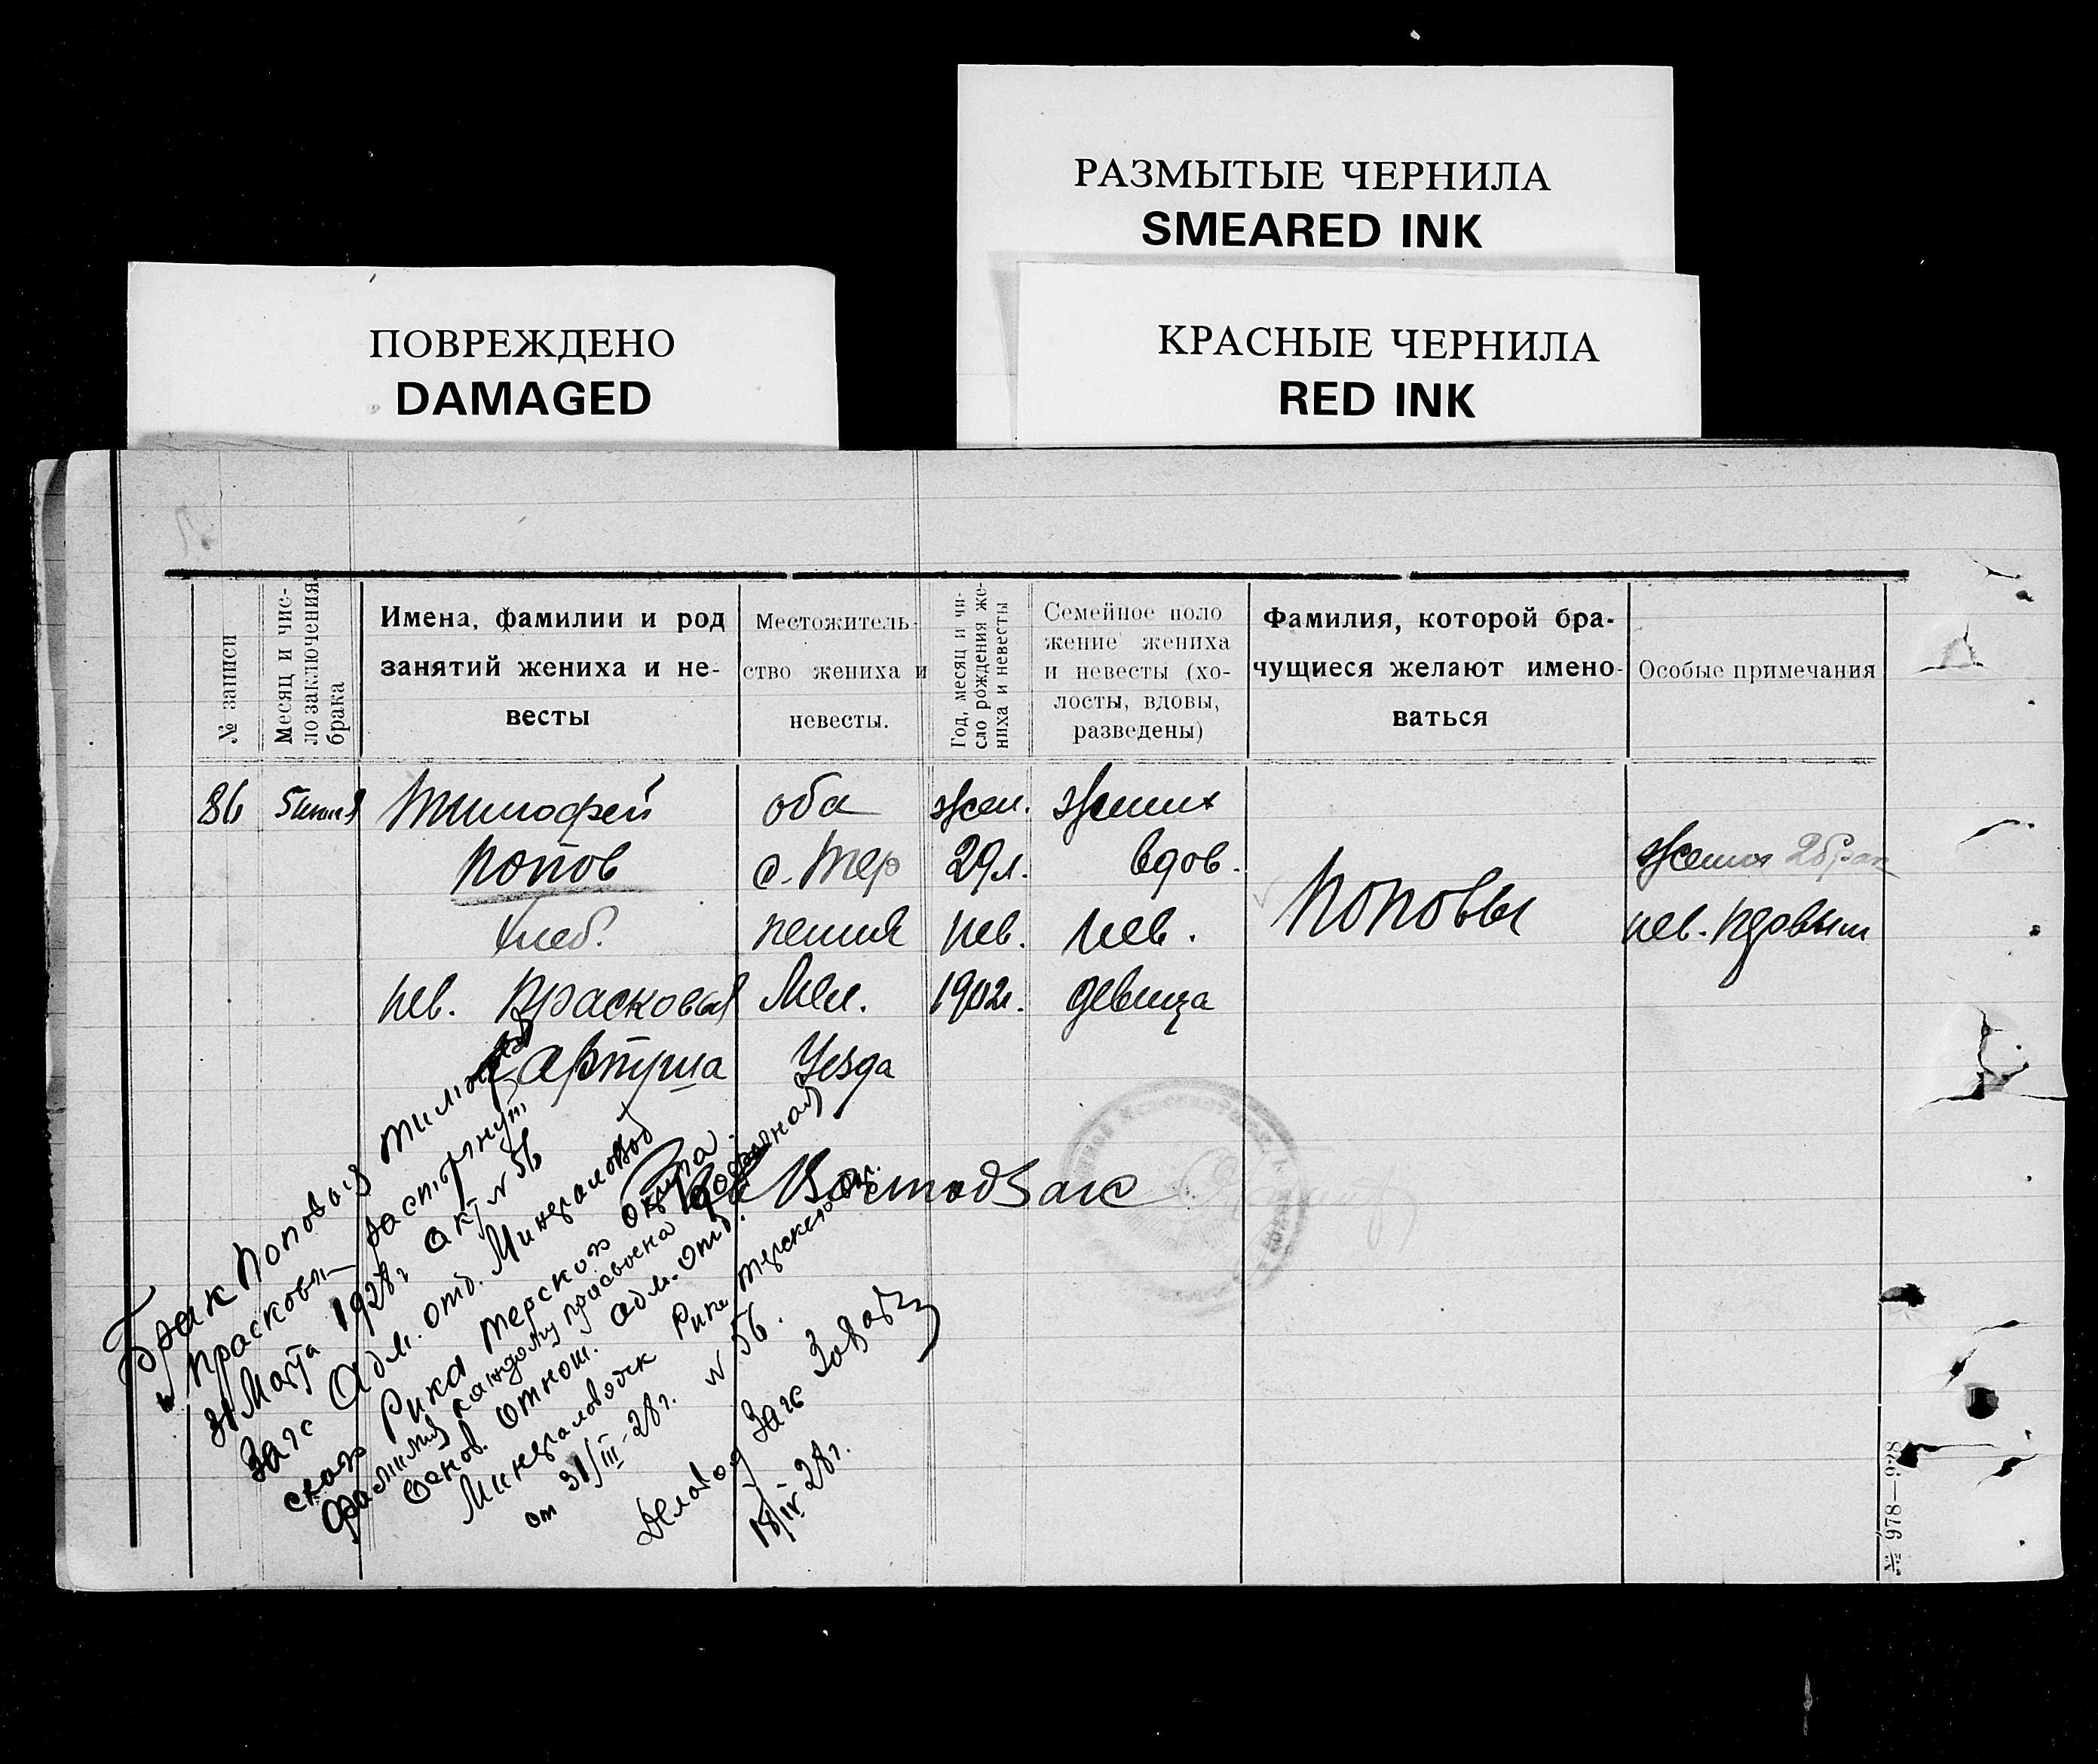 РАЗМЫТЫЕ ЧЕРНИЛА
SMEARED INK
ПОВРЕЖДЕНО
DAMAGED
КРАСНЫЕ ЧЕРНИЛА
RED INK
№ записи
Месяц и чис-
ло заключения
брака
Имена, фамилии и род
занятий жениха и не-
весты
Местожитель-
ство жениха и
невесты.
Год, месяц и чи-
сло рождения же-
ниха и невесты
Семейное поло
жение жениха
и невесты (хо-
лосты, вдовы,
разведены)
Фамилия, которой бра-
чущиеся желают имено-
ваться
Особые примечания
86
Тимофей
Попов
хлеб.
нев. Прасковья
Артуша
оба
с. Тер
Мин.
Уезда
жен.
29л.
нев.
1902г.
жених
вдов.
нев.
девица
Поповы
жених 2 брак
нев. первым
Брак Поповых Тимофея
и Прасковьи расторгнут
31 Марта 1928г. акт № 56
Загс Адм. отд. Минераловод
ского Рика Терского округа.
Фамилия каждому присвоена добрачная
Основ. отнош. Адм. отд.
Минераловодск Рика Терского окр.
от 31/III-28г. № 56.
Делопод Загс
18/IV 28г.
№ 978—9-8